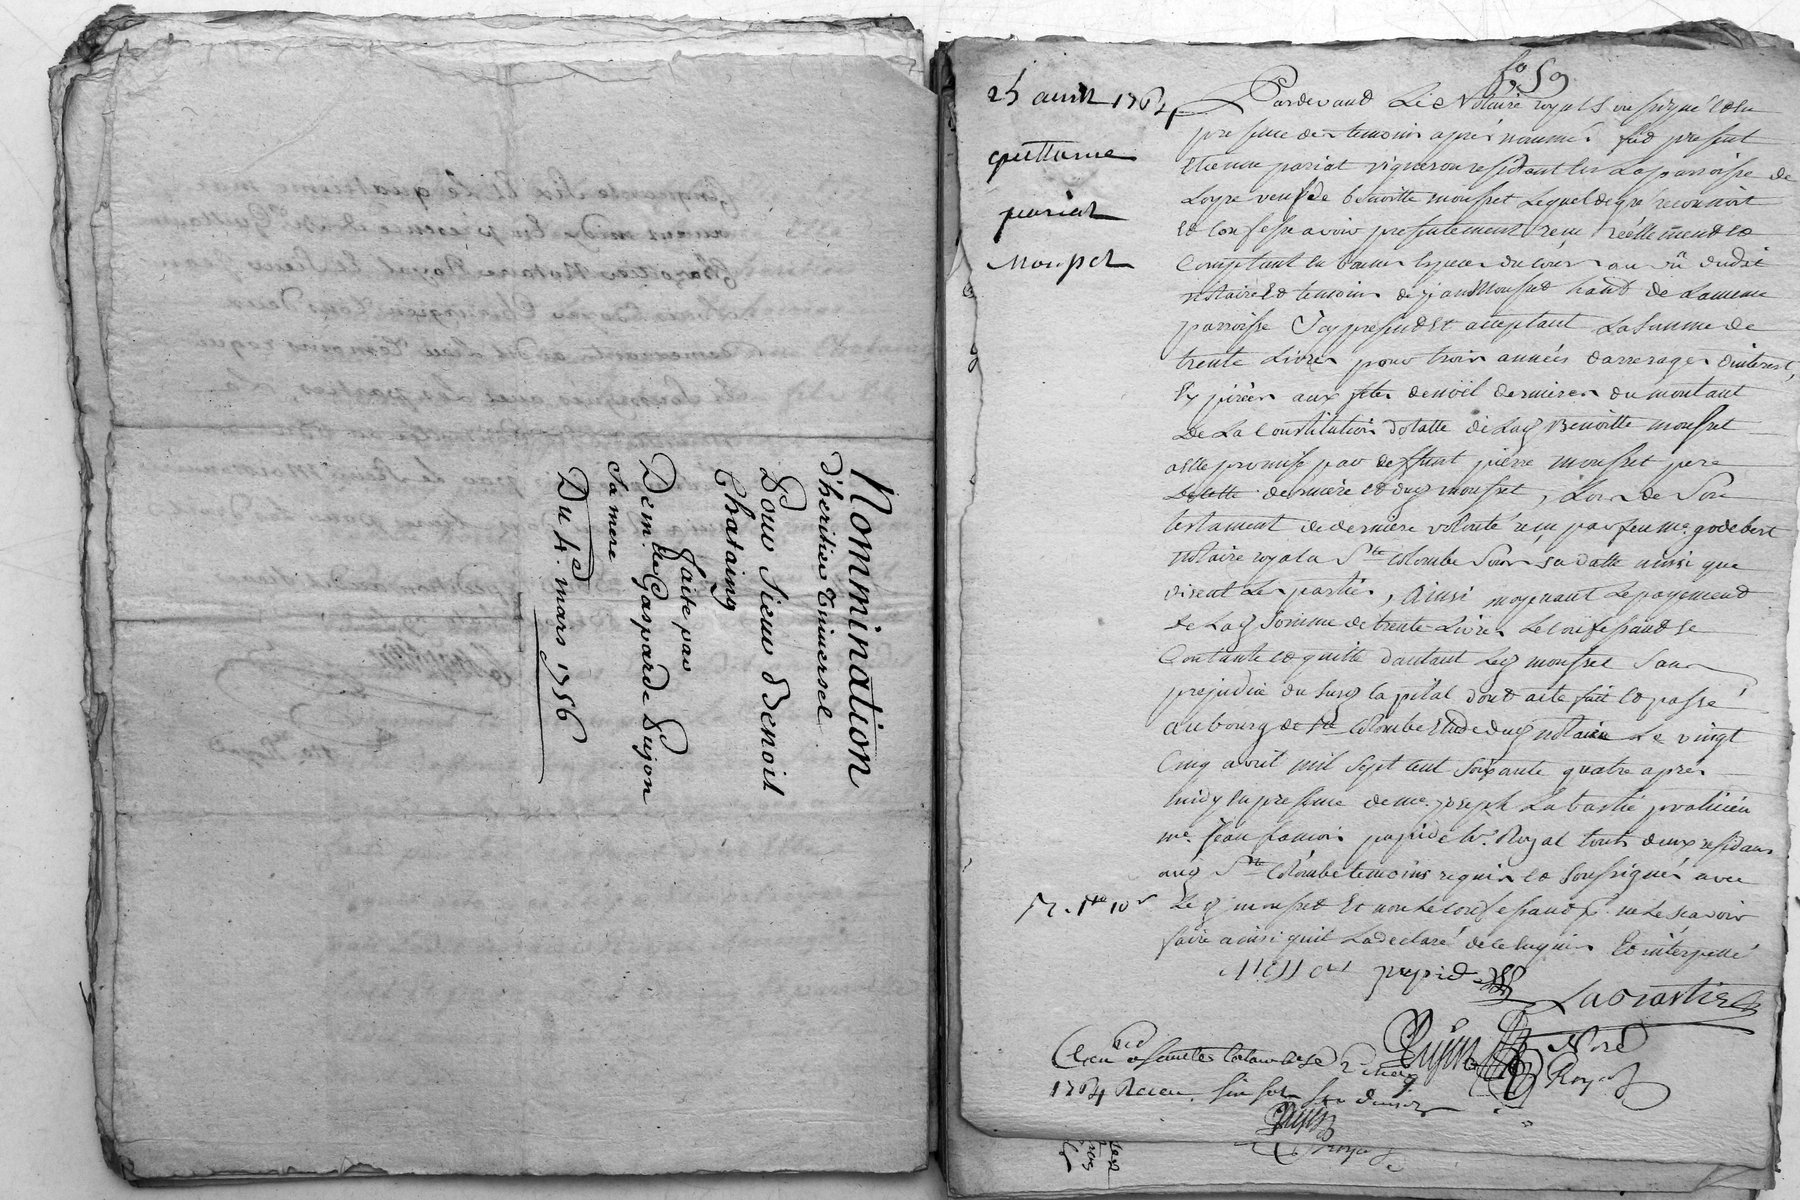 Nommination
d'heritier Universel
Pour Sieur Benoit
Chataing
faite par
Dem.lle Gasparde Dujon
sa mere
Du 4.e mars 1756
fo 59
25 avril 1764
quittance
pariat
Mousset
Pardevant Le Notaire royal Soussigné et en
presence des temoins aprés nommés fut present
Etienne pariat vigneron residant en La parroisse de
Loyre veuf de benoitte mousset Lequel de gré reconnoit
et Confesse avoir presentement reçu réellement et
Comptant en bonnes especes du cours au vû dudit
notaire et temoins de jean Mousset habt de La meme
parroisse Icy present et acceptant La Somme de
trente Livres pour trois années d'arrerages d'interest,
Expirées aux fetes de noël dernieres du montant
de La Constitution dotalle de Lad Benoitte mousset
a elle promise par deffunt pierre mousset pere
de cette derniere et dud mousset, Lors de Son
testament de derniere volonté reçu par feu me godebert
notaire royal a Ste Colombe Sous sa datte ainsi que
disent Les parties, Ainsi moyenant Le payement
de Lad Somme de trente Livres Le Confessant Se
Contante et quitte d'autant Led mousset Sans
prejudice du Susd Capital dont acte fait et passé
au bourg de Ste Colombe Etude dud notaire Le vingt
Cinq avril mil Sept cent Soixante quatre aprés
midy en presence de me joseph La bastie praticien
me jean papid Royal touts deux residans
aud Ste Colombe temoins requis et Soussignés avec
Le d mousset Et non Le Confessant p. ne Le Scavoir
faire ainsi quil La declaré de ce enquis et interpellé
Mousset papid Labastie
Dujon Not Royal
1764 Recu six sols six deniers
Dujon
Royal